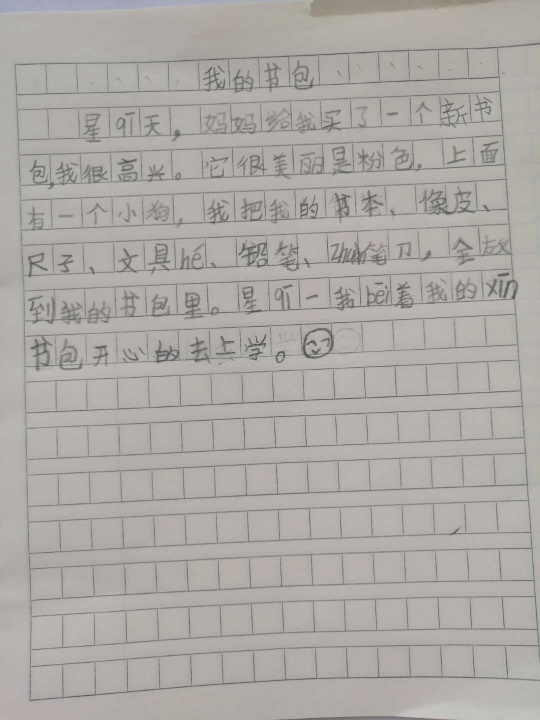 我的书包
星qī天，妈妈给我买了一个新书
包，我很高兴。它很美丽是粉色，上面
有一个小狗，我把我的书本、像皮、
尺子、文具hé、铅笔、zhuàn笔刀，全放
到我的书包里。星qī一我bēi着我的xīn
书包开心的去上学。